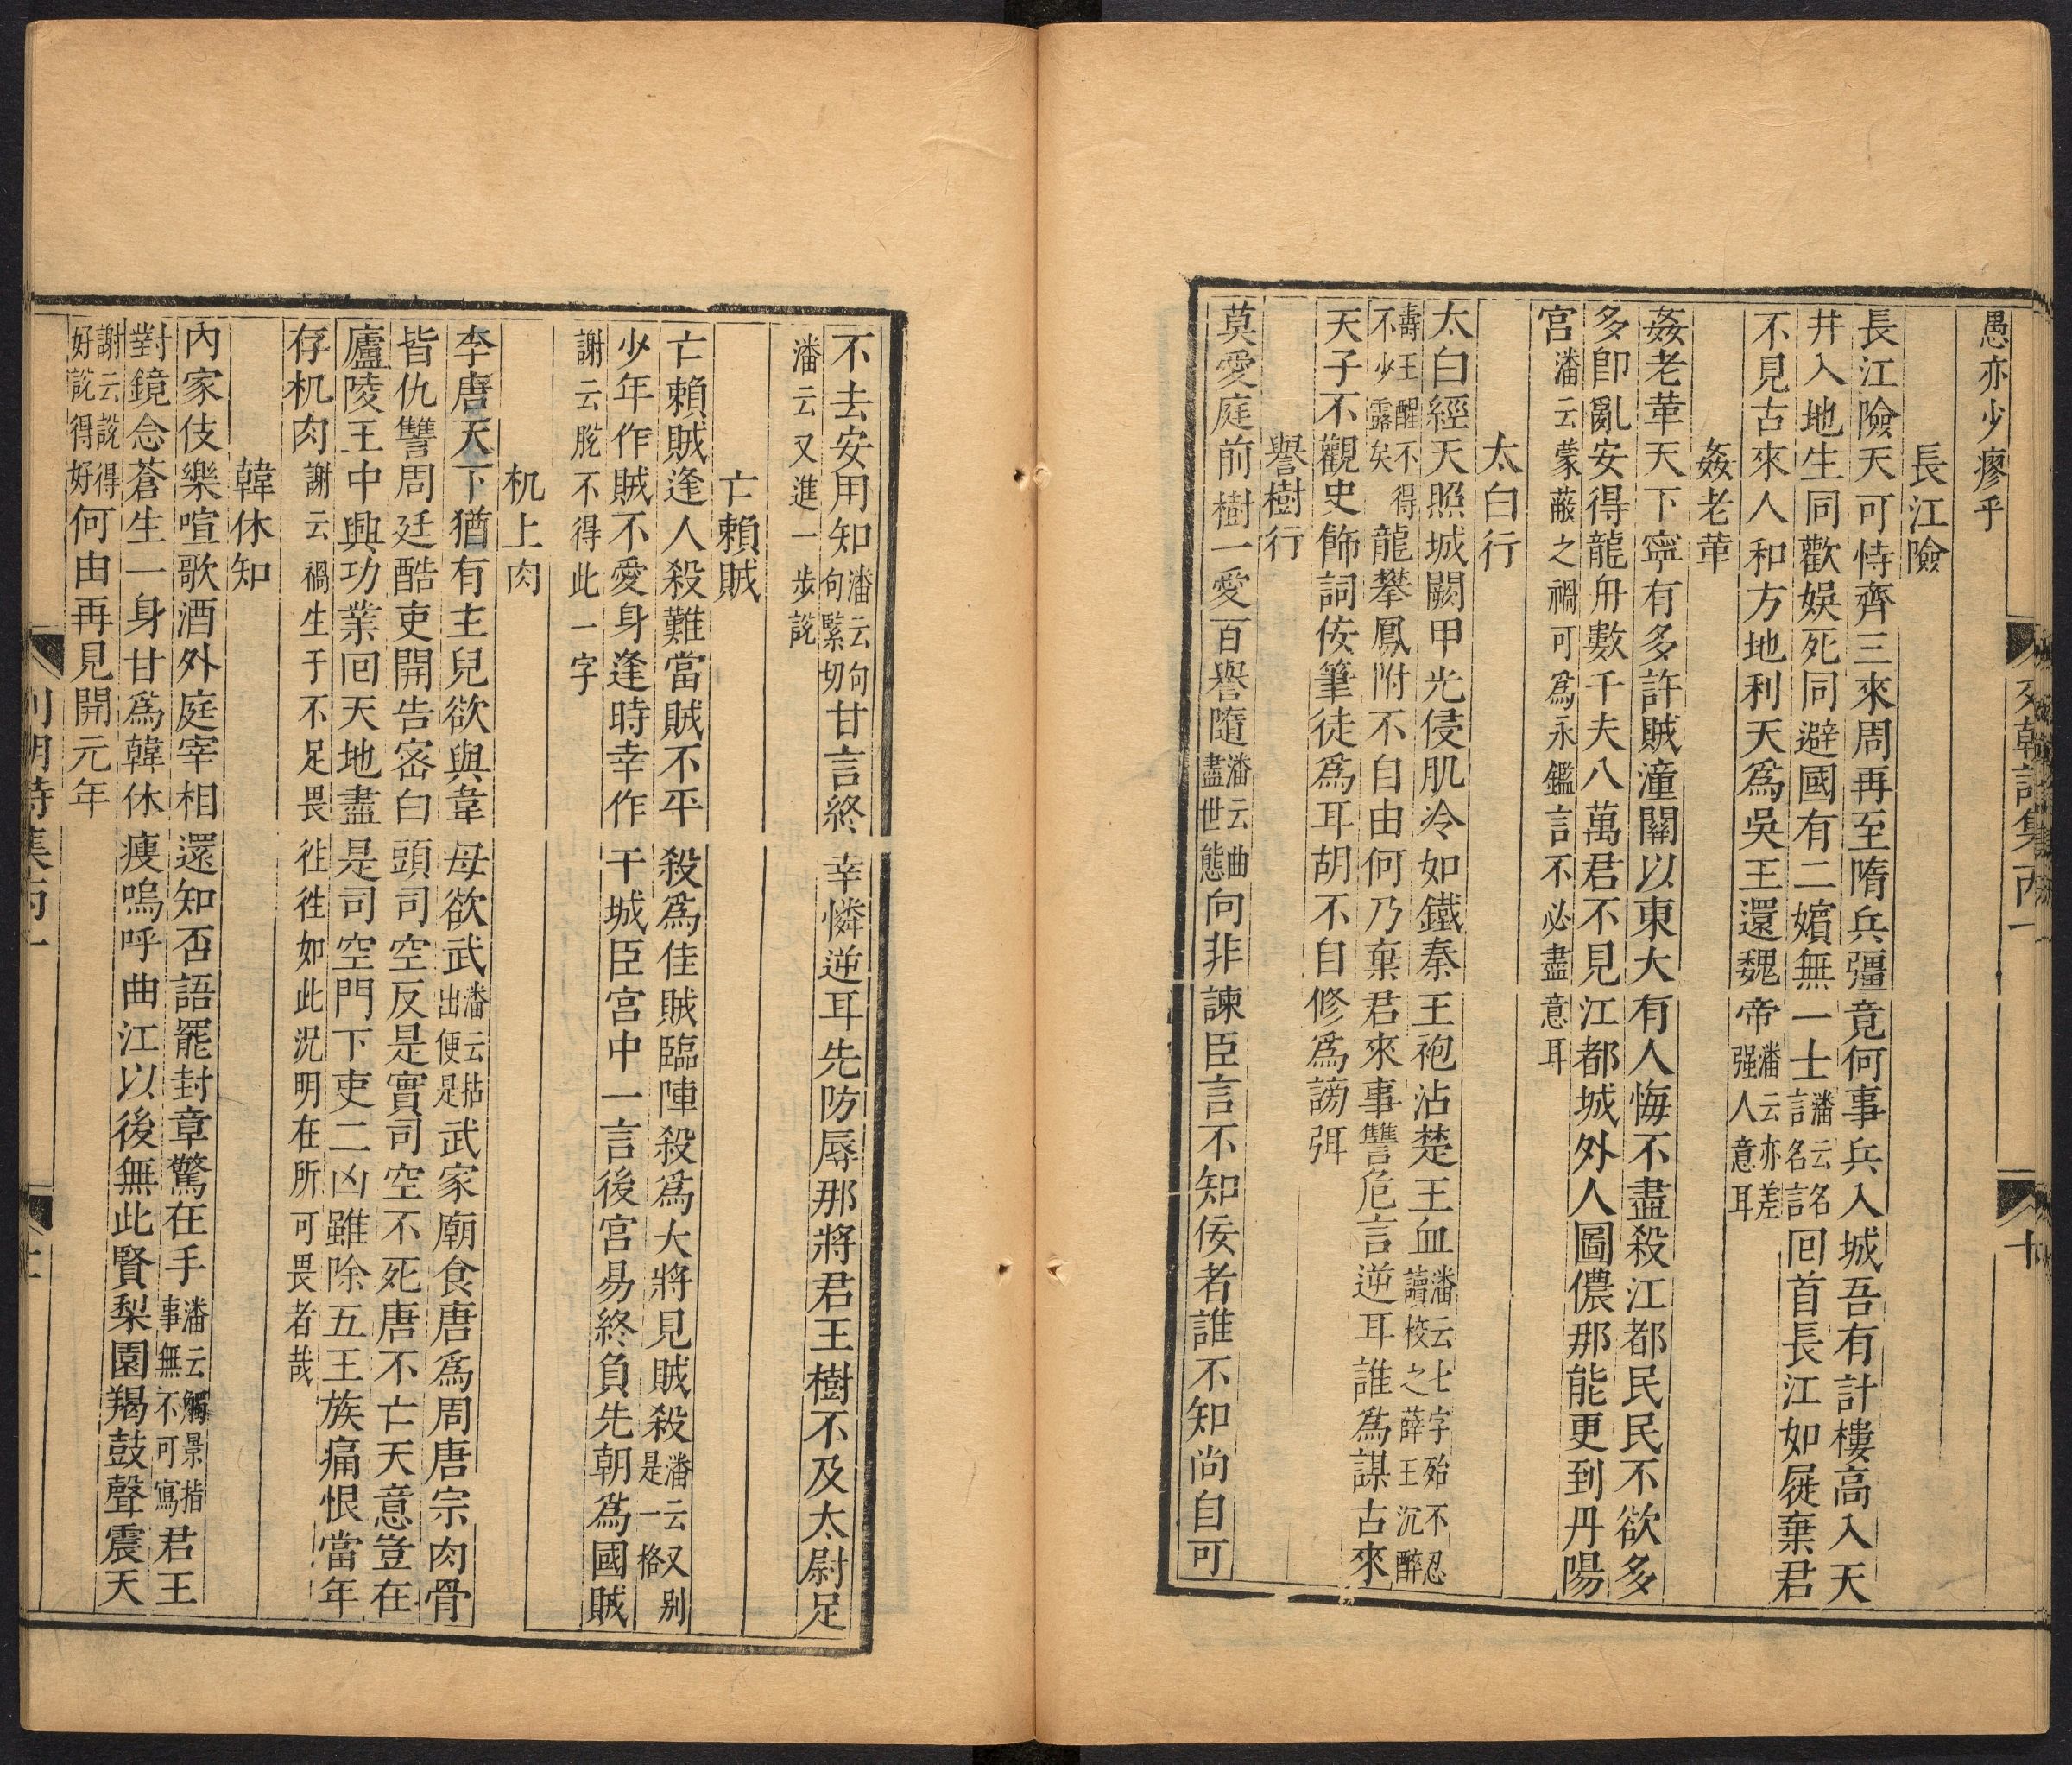 愚亦少瘳乎
長江險
長江險天可恃齊三來周再至隋兵彊竟何事兵入城吾有計樓高入天
井入地生同歡娛死同避國有二嬪無一士潘云名名言名言回首長江如屣棄君
不見古來人和方地利天爲吳王還魏帝潘云亦差强人意耳
姦老革
姦老革天下寧有多許賊潼關以東大有人悔不盡殺江都民民不欲多
多卽亂安得龍舟數千夫八萬君不見江都城外人圖儂那能更到丹陽
宮潘云蒙蔽之禍可爲永鑑言不必盡意耳
太白行
太白經天照城闕甲光侵肌冷如鐵秦王袍沾楚王血潘云七字殆不忍讀校之薛王沉醉
壽王醒不得不少露矣龍攀鳳附不自由何乃棄君來事讐危言逆耳誰爲謀古來
天子不觀史飾詞侫筆徒爲耳胡不自修爲謗弭
譽樹行
莫愛庭前樹一愛百譽隨潘云曲盡世態向非諫臣言不知佞者誰不知尚自可
不去安用知潘云句句緊切甘言終幸憐逆耳先防辱那將君王樹不及太尉足
潘云又進一步說
亡賴賊
亡賴賊逢人殺難當賊不平殺爲佳賊臨陣殺爲大將見賊殺潘云又别是一格
少年作賊不愛身逢時幸作干城臣宮中一言後宮易終負先朝爲國賊
謝云脫不得此一字
机上肉
李唐天下猶有主兒欲與韋母欲武潘云拈出便是武家廟食唐爲周唐宗肉骨
皆仇讐周廷酷吏開告密白頭司空反是實司空不死唐不亡天意豈在
廬陵王中興功業回天地盡是司空門下吏二凶雖除五王族痛恨當年
存机肉謝云禍生于不足畏徃徃如此況明在所可畏者哉
韓休知
內家伎樂喧歌酒外庭宰相還知否語罷封章驚在手潘云觸景指事無不可寫君王
對鏡念蒼生一身甘爲韓休瘦嗚呼曲江以後無此賢梨園羯鼓聲震天
謝云說得好說得好何由再見開元年